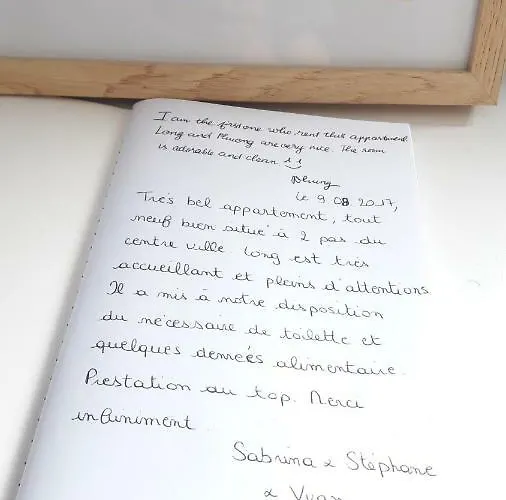 I am the first one who rent that appartment
Long and Phuong are very nice. The room
is adorable and clean ^^
Le 9 08 2017,
Très bel appartement, tout
neuf bien situé à 2 pas du
centre ville. Long est très
accueillant et pleins d'attentions.
Il a mis à notre disposition
du nécessaire de toilette et
quelques denrées alimentaire.
Prestation au top. Merci
infiniment
Sabrina & Stéphane
&